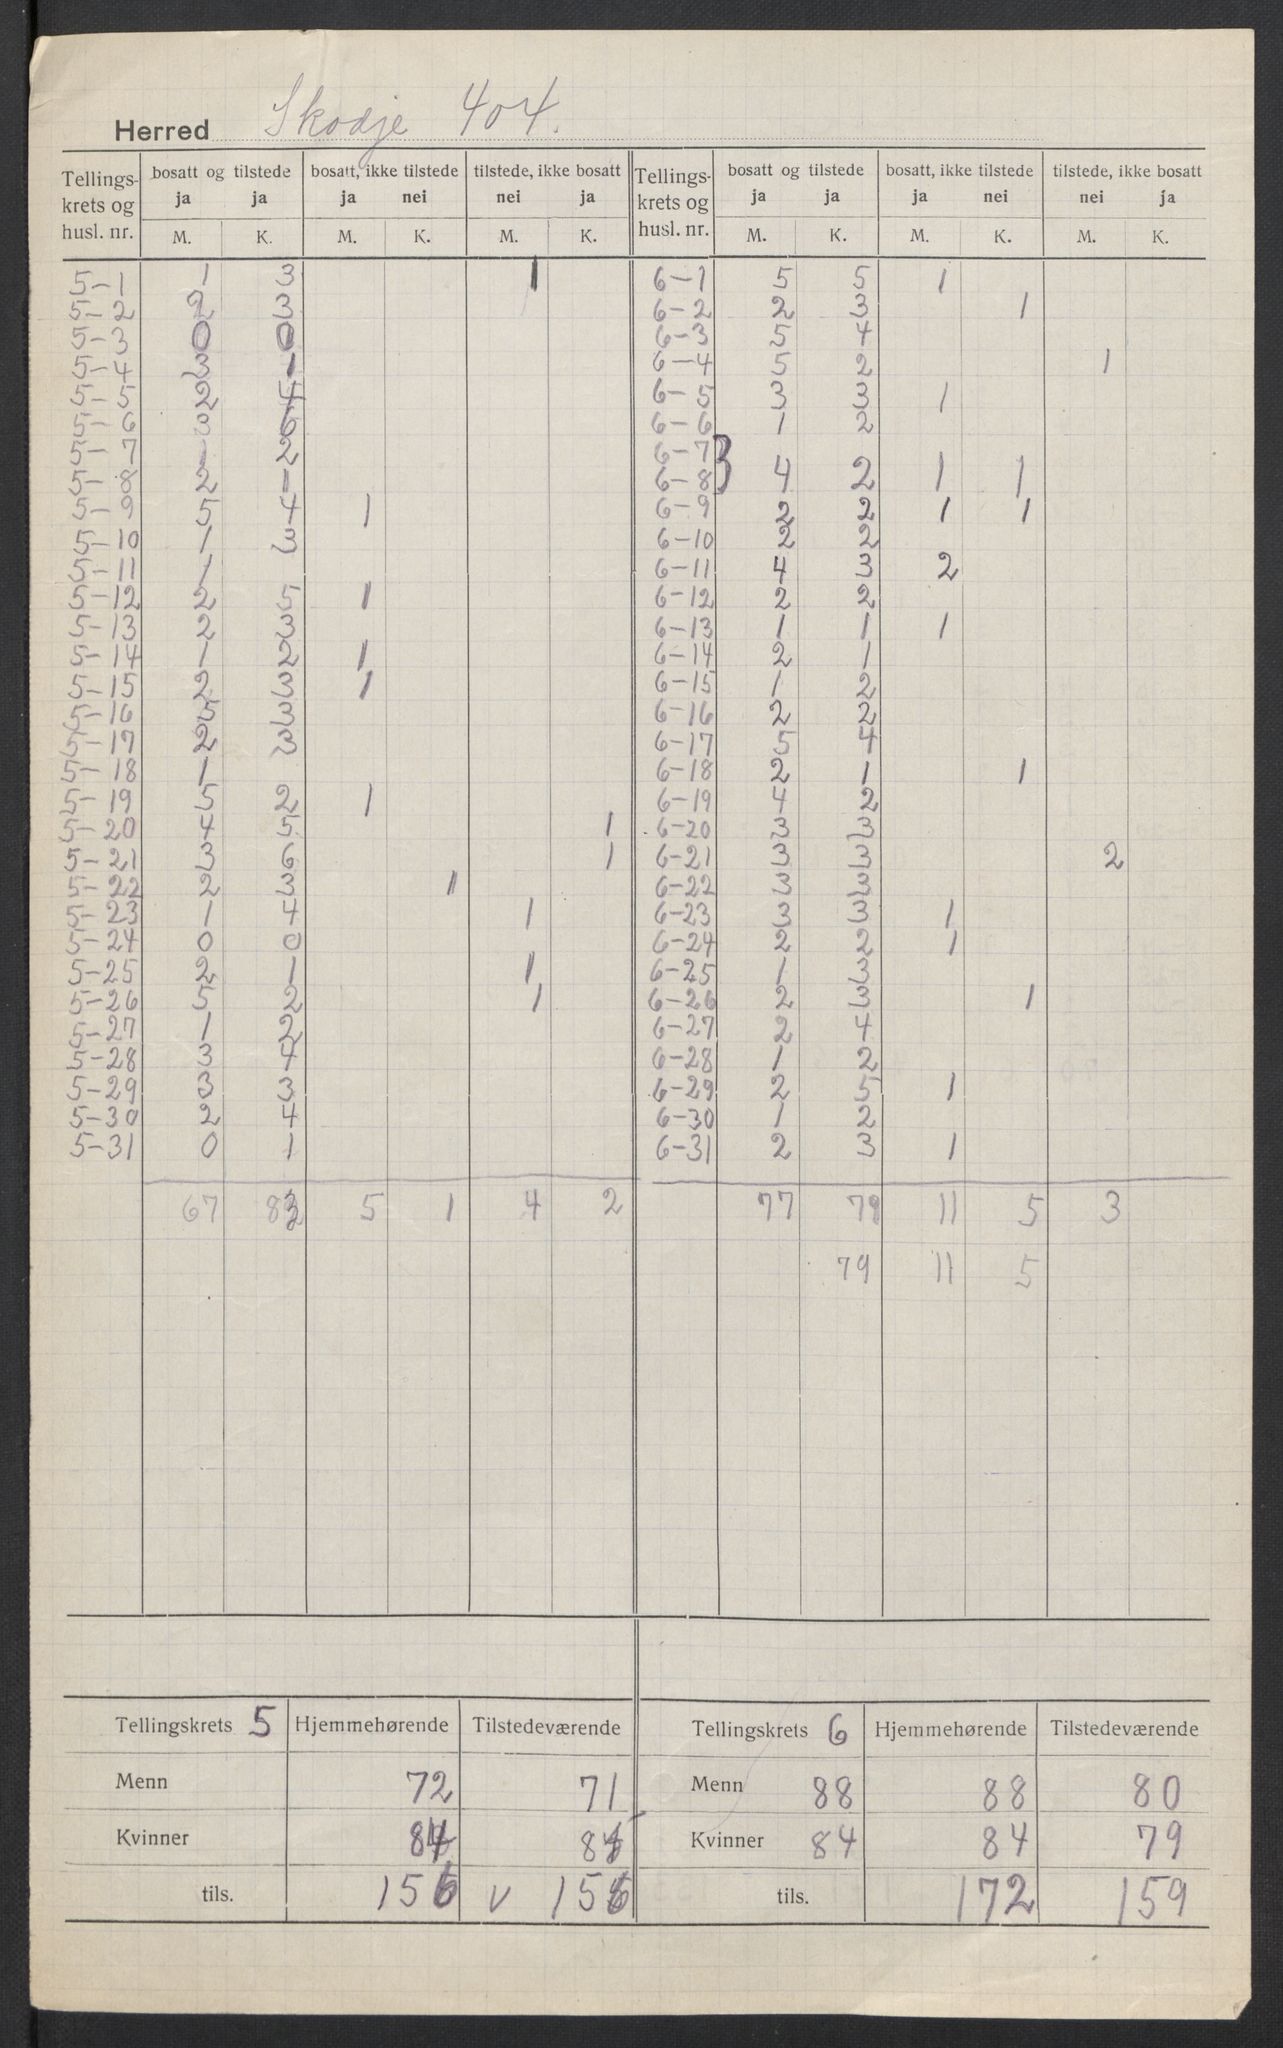 Herred Skodje 404.
Tellings-krets og husl. nr. | bosatt og tilstede ja ja | bosatt, ikke tilstede ja nei | tilstede, ikke bosatt nei ja | Tellings-krets og husl. nr. | bosatt og tilstede ja ja | bosatt, ikke tilstede ja nei | tilstede, ikke bosatt nei ja
M. K. M. K. M. K. M. K. M. K. M. K.
5-1 1 3 1 6-1 5 5 1
5-2 2 3 6-2 2 3 1
5-3 0 0 6-3 5 4
5-4 3 1 6-4 5 2 1
5-5 2 4 6-5 3 3 1
5-6 3 6 6-6 1 2
5-7 1 2 6-7
5-8 2 1 6-8 } 4 2 1 1
5-9 5 4 1 6-9 2 2 1 1
5-10 1 3 6-10 2 2
5-11 1 6-11 4 3 2
5-12 2 5 1 6-12 2 2
5-13 2 3 6-13 1 1 1
5-14 1 2 1 6-14 2 1
5-15 2 3 1 6-15 1 2
5-16 5 3 6-16 2 2
5-17 2 3 6-17 5 4
5-18 1 6-18 2 1 1
5-19 5 2 1 6-19 4 2
5-20 4 5 1 6-20 3 3
5-21 3 6 1 6-21 3 3 2
5-22 2 3 1 6-22 3 3
5-23 1 4 1 6-23 3 3 1
5-24 0 0 6-24 2 2 1
5-25 2 1 1 6-25 1 3
5-26 5 2 1 6-26 2 3 1
5-27 1 2 6-27 2 4
5-28 3 4 6-28 1 2
5-29 3 3 6-29 2 5 1
5-30 2 4 6-30 1 2
5-31 0 1 6-31 2 3 1
67 83 5 1 4 2 77 79 11 5 3
79 11 5
Tellingskrets 5 Hjemmehørende Tilstedeværende Tellingskrets 6 Hjemmehørende Tilstedeværende
Menn 72 71 Menn 88 88 80
Kvinner 84 85 Kvinner 84 84 79
tils. 156 v 156 tils. 172 159